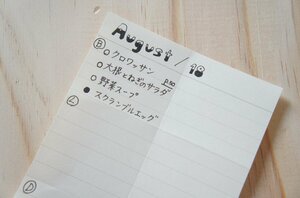 August / 18
Ⓑ ○ クロワッサン
○ 大根とねぎのサラダ
○ 野菜スープ
● スクランブルエッグ
Ⓛ
Ⓓ